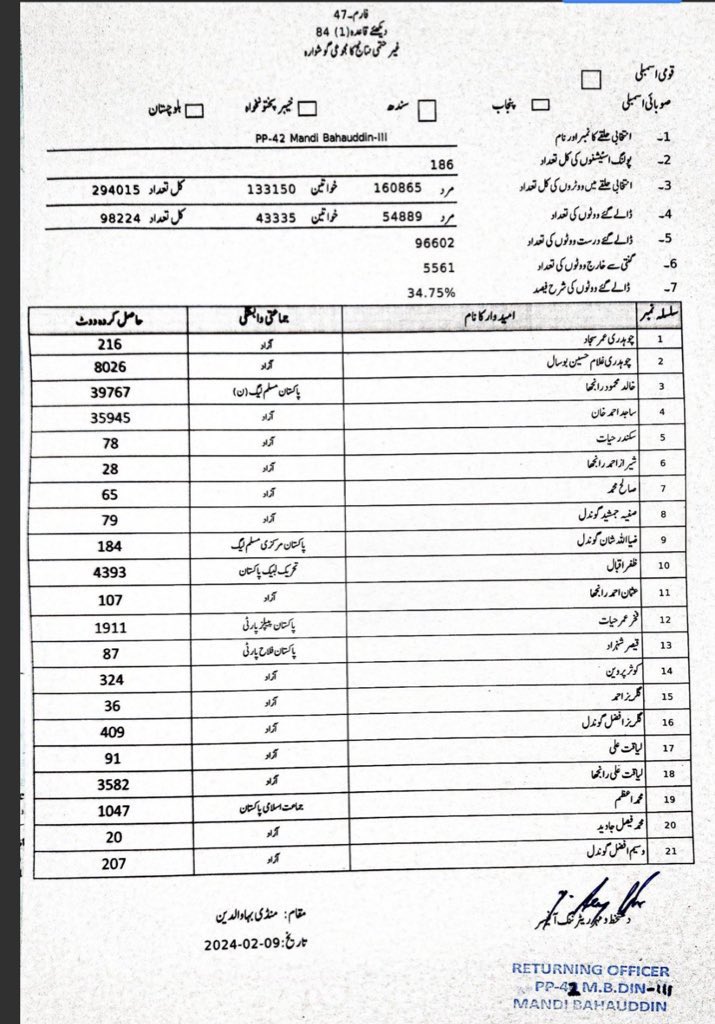 فارم-47
دیکھئے قاعدہ (1) 84
غیر حتمی نتائج کا مجموعی گوشوارہ
قومی اسمبلی
صوبائی اسمبلی پنجاب سندھ خیبر پختونخواہ بلوچستان
1- انتخابی حلقے کا نمبر اور نام PP-42 Mandi Bahauddin-III
2- پولنگ اسٹیشنوں کی کل تعداد 186
3- انتخابی حلقے میں ووٹروں کی کل تعداد مرد 160865 خواتین 133150 کل تعداد 294015
4- ڈالے گئے ووٹوں کی تعداد مرد 54889 خواتین 43335 کل تعداد 98224
5- ڈالے گئے درست ووٹوں کی تعداد 96602
6- گنتی سے خارج ووٹوں کی تعداد 5561
7- ڈالے گئے ووٹوں کی شرح فیصد 34.75%
سلسلہ نمبر امیدوار کا نام جماعتی وابستگی حاصل کردہ ووٹ
1 چوہدری عمر سجاد آزاد 216
2 چوہدری غلام حسین بوسال آزاد 8026
3 خالد محمود رانجھا پاکستان مسلم لیگ (ن) 39767
4 ساجد احمد خان آزاد 35945
5 سکندر حیات آزاد 78
6 شیراز احمد رانجھا آزاد 28
7 صالح محمد آزاد 65
8 صفیہ جمشید گوندل آزاد 79
9 ضیااللہ شان گوندل پاکستان مرکزی مسلم لیگ 184
10 ظفر اقبال تحریک لبیک پاکستان 4393
11 عثمان احمد رانجھا آزاد 107
12 فخر عمر حیات پاکستان پیپلز پارٹی 1911
13 قیصر شہزاد پاکستان فلاح پارٹی 87
14 کوثر پروین آزاد 324
15 گلریز احمد آزاد 36
16 گلریز افضل گوندل آزاد 409
17 لیاقت علی آزاد 91
18 لیاقت علی رانجھا آزاد 3582
19 محمد اعظم جماعت اسلامی پاکستان 1047
20 محمد فیصل جاوید آزاد 20
21 وسیم افضل گوندل آزاد 207
دستخط و مہر ریٹرننگ آفیسر
مقام: منڈی بہاوالدین
تاریخ: 2024-02-09
RETURNING OFFICER
PP-42 M.B.DIN-III
MANDI BAHAUDDIN